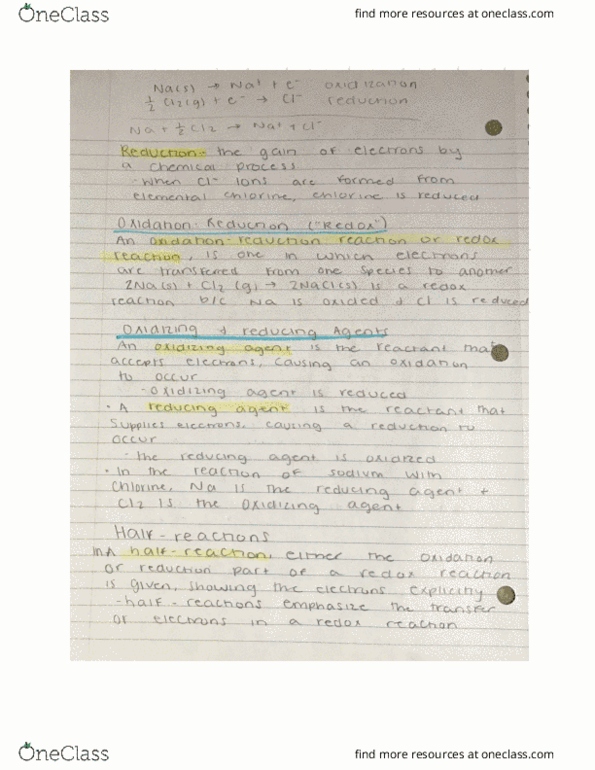 OneClass
find more resources at oneclass.com
Na(s) → Na⁺ + e⁻ oxidization
½ Cl₂(g) + e⁻ → Cl⁻ reduction
Na + ½ Cl₂ → Na⁺ + Cl⁻
Reduction - the gain of electrons by
a chemical process
- When Cl⁻ ions are formed from
elemental chlorine, chlorine is reduced
Oxidation-Reduction ("Redox")
An oxidation-reduction reaction or redox
reaction, is one in which electrons
are transferred from one species to another
2Na(s) + Cl₂(g) → 2NaCl(s) is a redox
reaction b/c Na is oxided & Cl is reduced
Oxidizing & reducing Agents
An oxidizing agent is the reactant that
accepts electrons, causing an oxidation
to occur
- oxidizing agent is reduced
• A reducing agent is the reactant that
supplies electrons, causing a reduction to
occur
- the reducing agent is oxidized
• In the reaction of sodium with
chlorine, Na is the reducing agent +
Cl₂ is the oxidizing agent
Half-reactions
In A half-reaction, either the oxidation
or reduction part of a redox reaction
is given, showing the electrons explicity
- half-reactions emphasize the transfer
of electrons in a redox reaction
OneClass
find more resources at oneclass.com